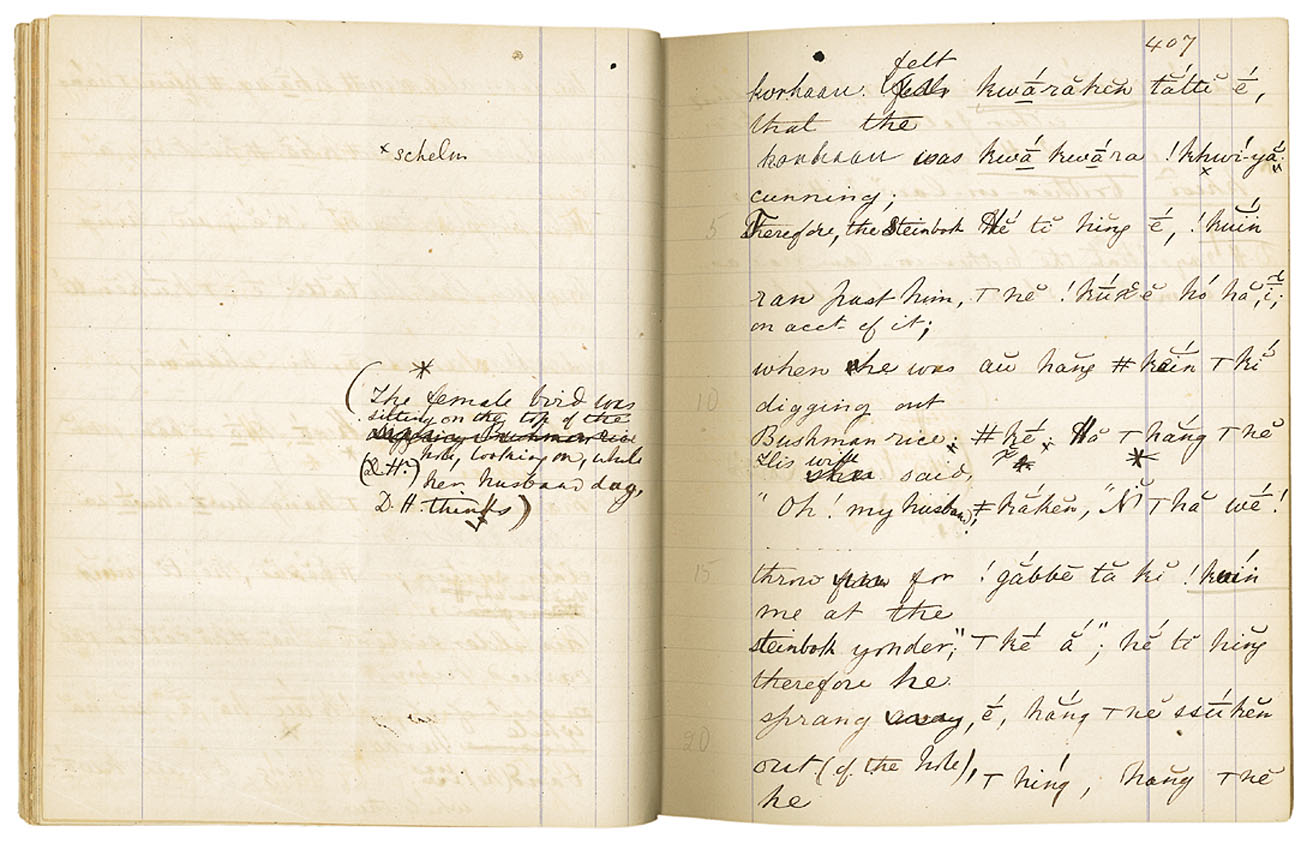 × schelm
*
(The female bird was
sitting on the top of the
digging Bushman rice
hole, looking on, while
(D.H.) her husband dug,
D.H. thinks)
407
felt
korhaan. kwárăkĕn tắttĕ é,
that the
korhaan was kwá kwára !khwí-yắ.
cunning;
5 Therefore, the Steinbok Hé tĭ hĭng é, !kúïn
ran past him, ⊤nĕ !kúχĕ hó hă, ĭ;
on acct of it;
when he was aŭ hăng ǂkáïn ⊤kĭ
10 digging out
Bushman rice; ǂké. Hă ⊤hăng ⊤nĕ
His wife said,
"Oh! my husband, ǂkákĕn, "Ṅ ⊤hă wé!
15 throw for !gábbĕ tă kĭ !kúïn
me at the
steinbok yonder;" ⊤ké ắ"; hé tĭ hĭng
therefore he
sprang away, é, hăng ⊤nĕ ssúkĕn
20
out (of the hole), ⊤híng, hăng ⊤nĕ
he